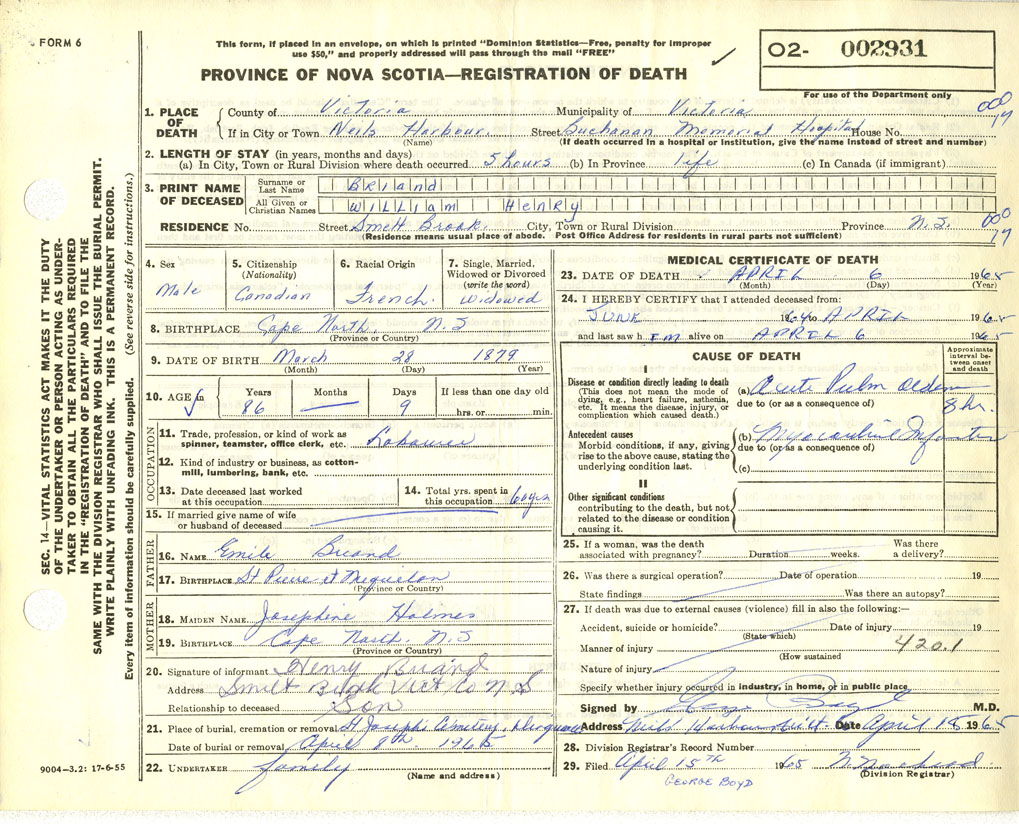 FORM 6
This form, if placed in an envelope, on which is printed "Dominion Statistics—Free, penalty for improper
use $50," and properly addressed will pass through the mail "FREE"
PROVINCE OF NOVA SCOTIA—REGISTRATION OF DEATH
02- 002931
For use of the Department only
SEC. 14—VITAL STATISTICS ACT MAKES IT THE DUTY
OF THE UNDERTAKER OR PERSON ACTING AS UNDER-
TAKER TO OBTAIN ALL THE PARTICULARS REQUIRED
IN THE "REGISTRATION OF DEATH" AND TO FILE THE
SAME WITH THE DIVISION REGISTRAR WHO SHALL ISSUE THE BURIAL PERMIT.
WRITE PLAINLY WITH UNFADING INK. THIS IS A PERMANENT RECORD.
Every item of information should be carefully supplied. (See reverse side for instructions.)
1. PLACE OF DEATH County of Victoria Municipality of Victoria 000 17
If in City or Town Neils Harbour. Street Buchanan Memorial Hospital House No.
(Name) (If death occurred in a hospital or institution, give the name instead of street and number)
2. LENGTH OF STAY (in years, months and days)
(a) In City, Town or Rural Division where death occurred 5 hours (b) In Province life (c) In Canada (if immigrant)
3. PRINT NAME OF DECEASED Surname or Last Name Briand
All Given or Christian Names William Henry
RESIDENCE No. Street Smelt Brook. City, Town or Rural Division Province N.S. 000 17
(Residence means usual place of abode. Post Office Address for residents in rural parts not sufficient)
4. Sex Male
5. Citizenship (Nationality) Canadian
6. Racial Origin French.
7. Single, Married, Widowed or Divorced (write the word) Widowed
8. BIRTHPLACE Cape North, N.S
(Province or Country)
9. DATE OF BIRTH March 28 1879
(Month) (Day) (Year)
10. AGE in Years 86 Months — Days 9 If less than one day old hrs. or min.
OCCUPATION
11. Trade, profession, or kind of work as
spinner, teamster, office clerk, etc. Labourer
12. Kind of industry or business, as cotton-
mill, lumbering, bank, etc.
13. Date deceased last worked
at this occupation
14. Total yrs. spent in
this occupation 60 yrs
15. If married give name of wife
or husband of deceased
FATHER
16. NAME Emile Briand
17. BIRTHPLACE St Pierre et Miquelon
(Province or Country)
MOTHER
18. MAIDEN NAME Josephine Holmes
19. BIRTHPLACE Cape North. N.S
(Province or Country)
20. Signature of informant Henry Briand
Address Smelt Brook Vict Co N S
Relationship to deceased Son
21. Place of burial, cremation or removal St Joseph's Cemetery,
Date of burial or removal April 8th 1965
22. UNDERTAKER family
(Name and address)
9004-3.2: 17-6-55
MEDICAL CERTIFICATE OF DEATH
23. DATE OF DEATH APRIL 6 1965
(Month) (Day) (Year)
24. I HEREBY CERTIFY that I attended deceased from:
JUNE 1964 to APRIL 1965
and last saw h im alive on APRIL 6 1965
CAUSE OF DEATH
Approximate interval between onset and death
I
Disease or condition directly leading to death
(This does not mean the mode of
dying, e.g., heart failure, asthenia,
etc. It means the disease, injury, or
complication which caused death.)
(a) Acute Pulm Oedem
due to (or as a consequence of) 8 hr.
Antecedent causes
Morbid conditions, if any, giving
rise to the above cause, stating the
underlying condition last.
(b) Myocardial Infarction
due to (or as a consequence of)
(c)
II
Other significant conditions
contributing to the death, but not
related to the disease or condition
causing it.
25. If a woman, was the death
associated with pregnancy? Duration weeks. Was there a delivery?
26. Was there a surgical operation? Date of operation 19
State findings Was there an autopsy?
27. If death was due to external causes (violence) fill in also the following:—
Accident, suicide or homicide? Date of injury 19
(State which)
Manner of injury 420.1
(How sustained
Nature of injury
Specify whether injury occurred in industry, in home, or in public place
Signed by Boyd M.D.
Address Neils Harbour Date April 15 1965
28. Division Registrar's Record Number
29. Filed April 15TH 1965
(Division Registrar)
GEORGE BOYD